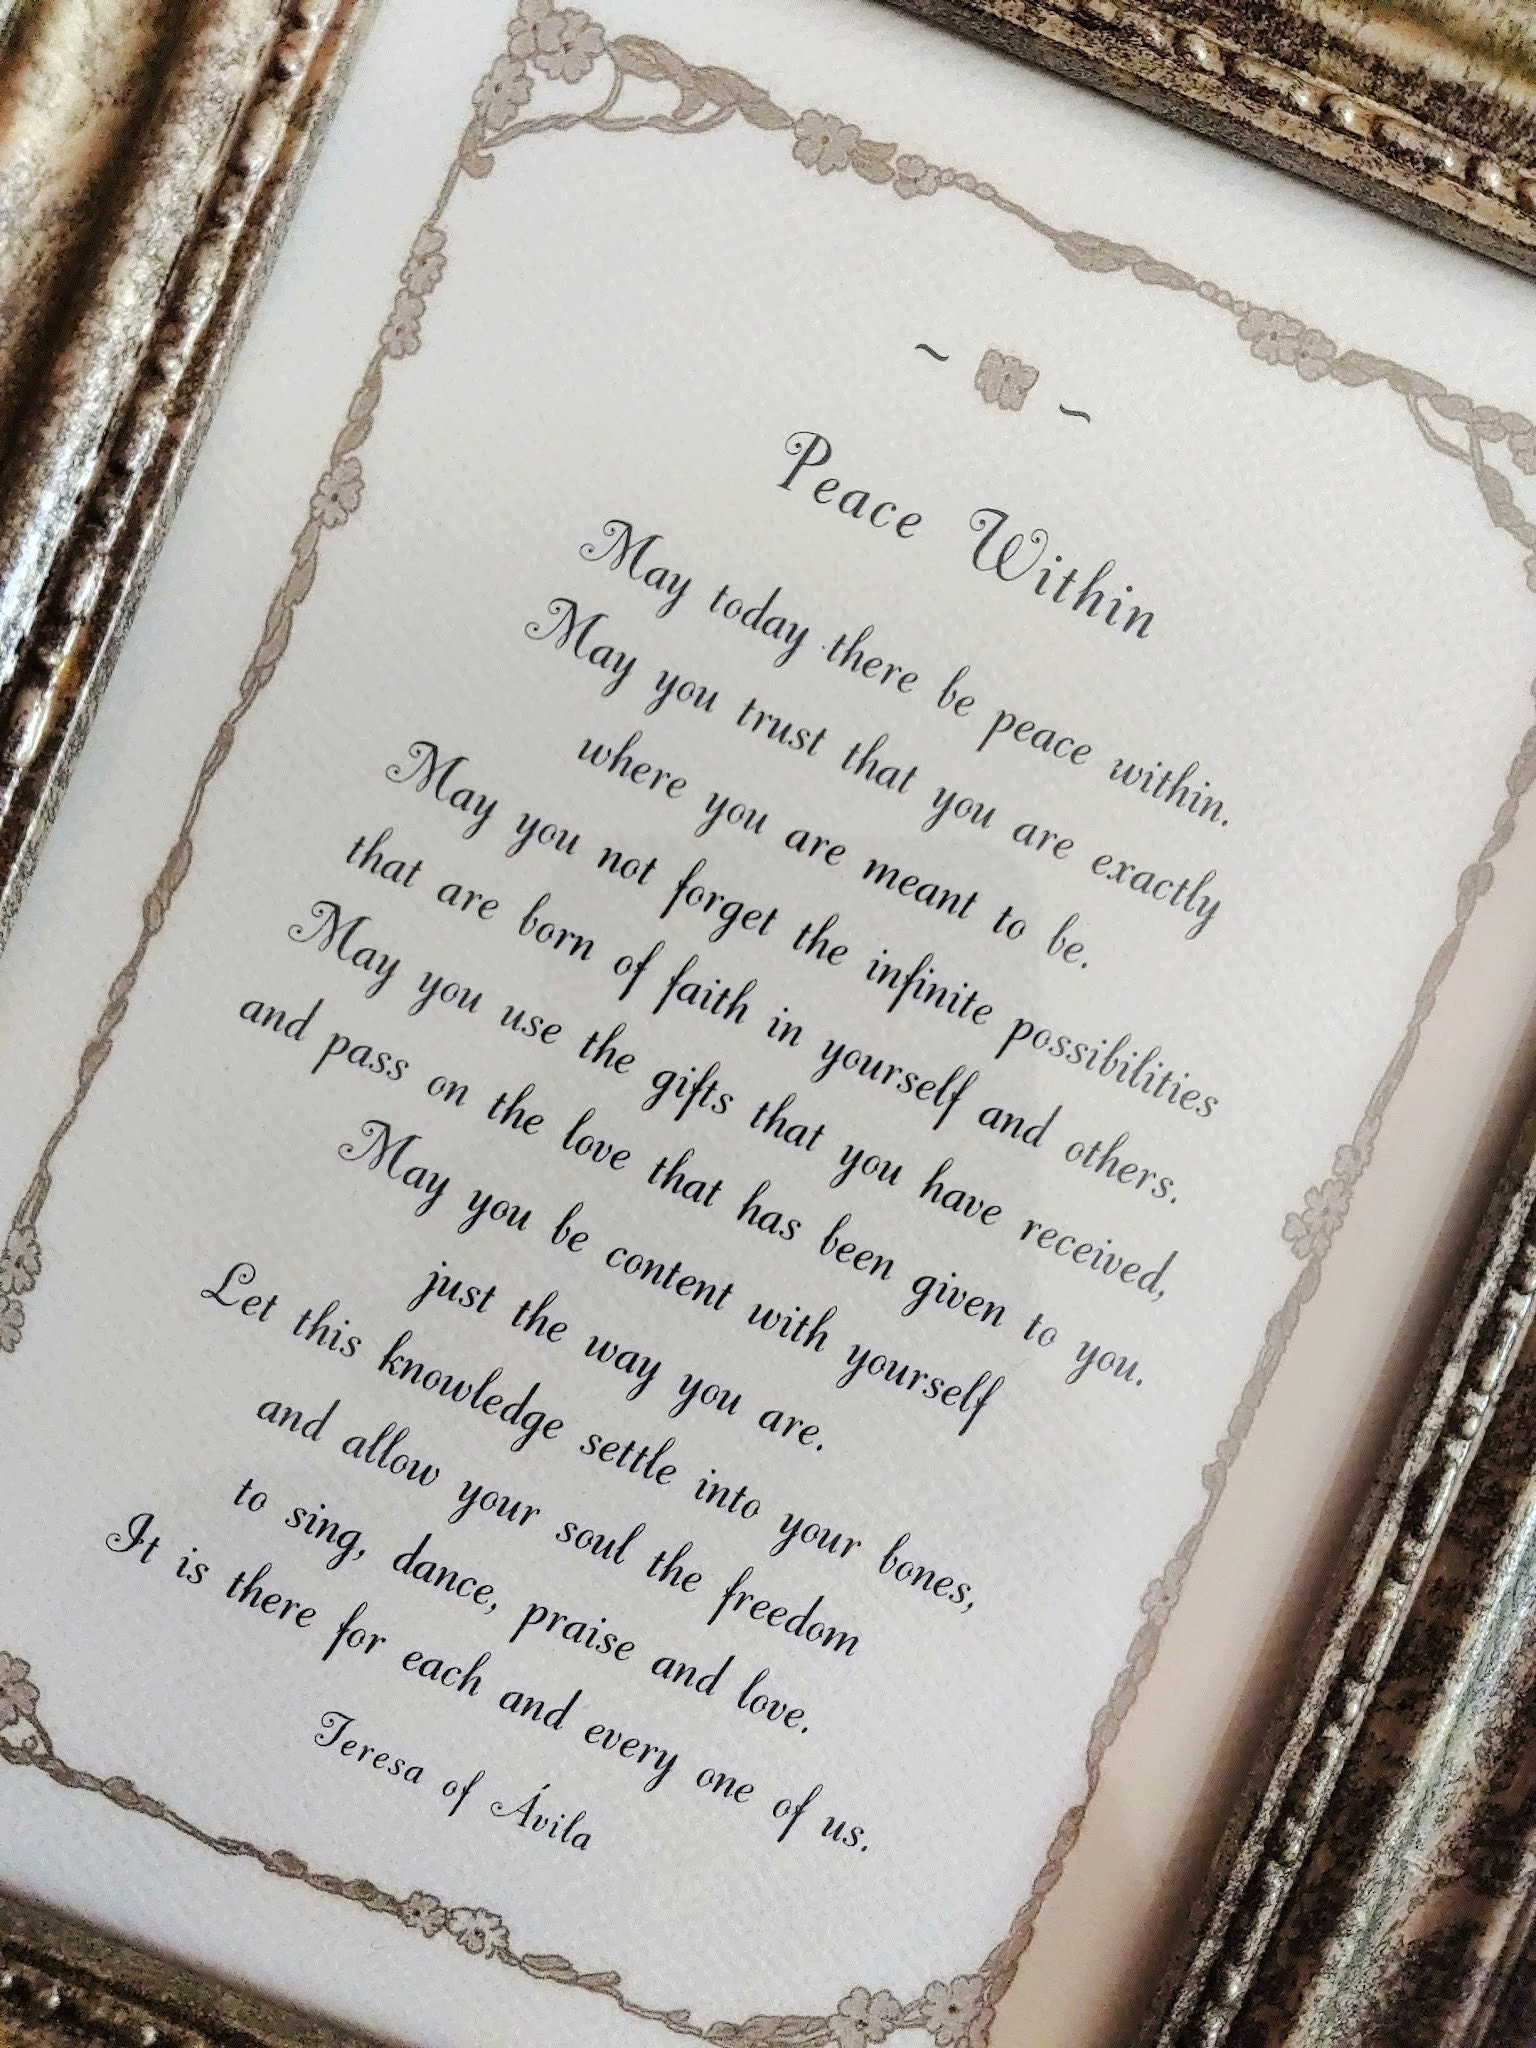 ~ ~
Peace Within
May today there be peace within.
May you trust that you are exactly
where you are meant to be.
May you not forget the infinite possibilities
that are born of faith in yourself and others.
May you use the gifts that you have received,
and pass on the love that has been given to you.
May you be content with yourself
just the way you are.
Let this knowledge settle into your bones,
and allow your soul the freedom
to sing, dance, praise and love.
It is there for each and every one of us.
Teresa of Ávila